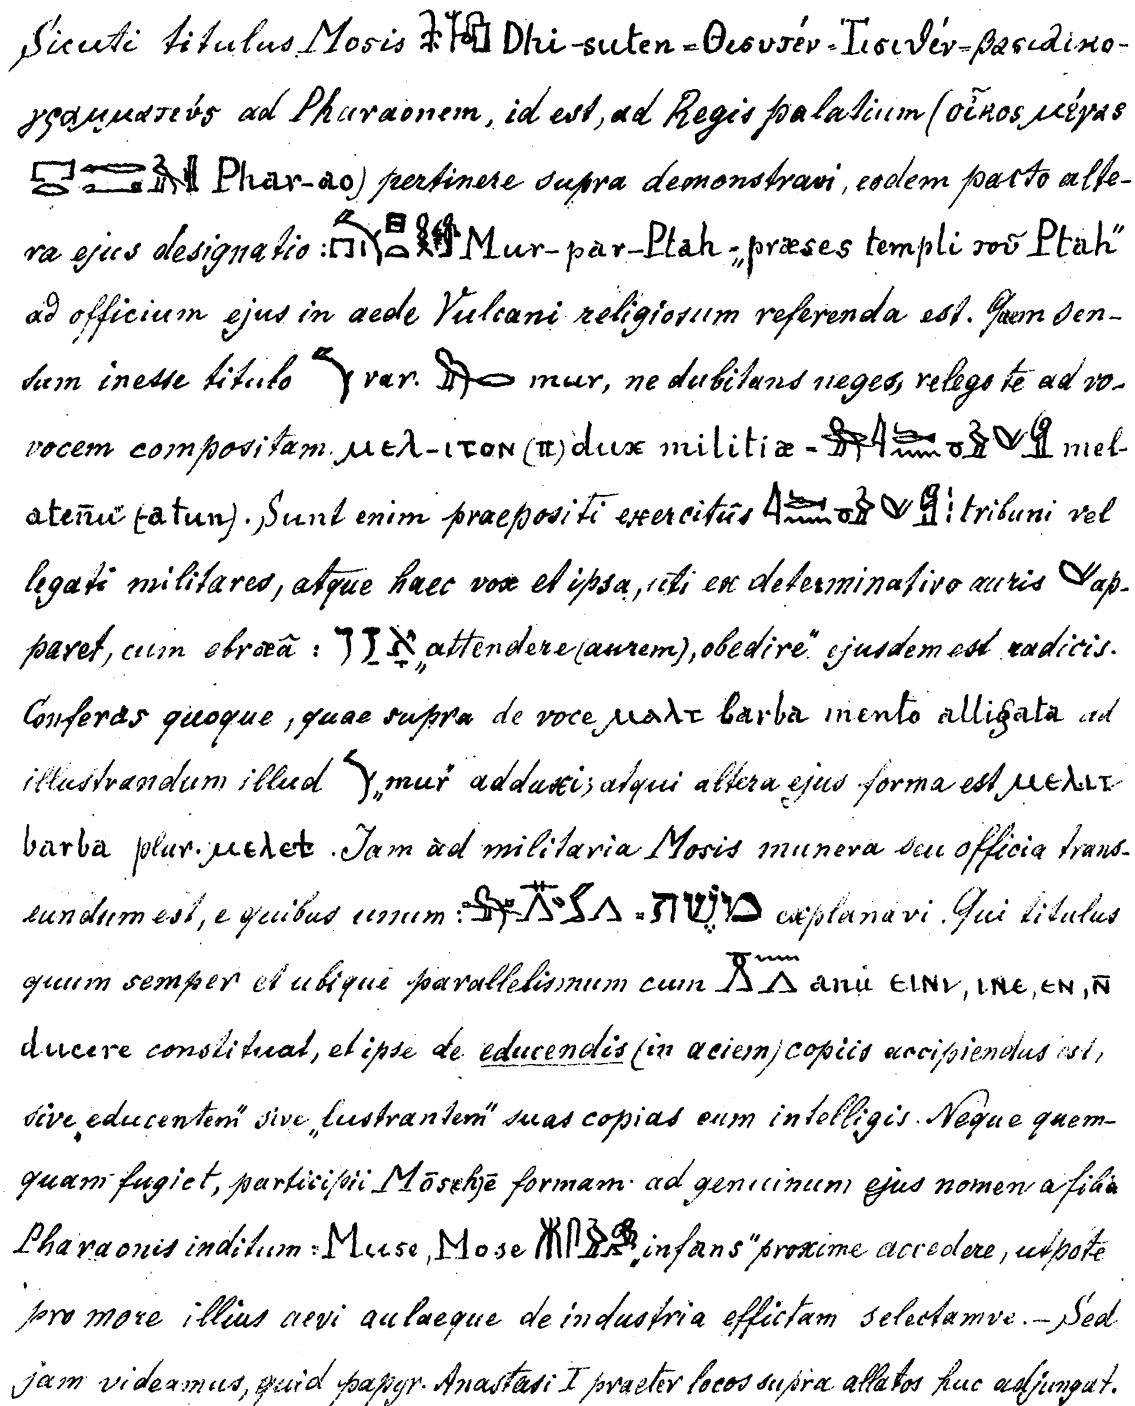 Sicuti titulus Mosis Dhi-suten = Θισυτέν = Τισιθέν = βασιλικο-
γραμματεύς ad Pharaonem, id est, ad Regis palatium (οἶκος μέγας
Phar-ao) pertinere supra demonstravi, eodem pacto alte-
ra ejus designatio : Mur-par-Ptah = „præses templi τοῦ Ptah"
ad officium ejus in aede Vulcani religiosum referenda est. Quem sen-
sum inesse titulo var. mur, ne dubitans neges, relego te ad vo-
vocem compositam ⲙⲉⲗ-ⲓⲧⲟⲛ (ⲡ) dux militiæ = mel-
atenu (-atun). Sunt enim praepositi exercitûs tribuni vel
legati militares, atque haec vox et ipsa, uti ex determinativo auris ap-
paret, cum ebræâ : אזן „attendere (aurem), obedire" ejusdem est radicis.
Conferas quoque, quae supra de voce ⲙⲁⲗⲧ barba mento alligata ad
illustrandum illud „mur" adduxi; atqui altera ejus forma est ⲙⲉⲗⲓⲧ
barba plur. ⲙⲉⲗⲉⲧ. Jam ad militaria Mosis munera seu officia trans-
eundum est, e quibus unum : = מֹשֶׁה explanavi. Qui titulus
quum semper et ubique parallelismum cum anu ⲉⲓⲛⲓ, ⲓⲛⲉ, ⲉⲛ, ⲛ̄
ducere constituat, et ipse de educendis (in aciem) copiis accipiendus est,
sive „educentem" sive „lustrantem" suas copias eum intelligis. Neque quem-
quam fugiet, participii formam ad genuinum ejus nomen a filia
Pharaonis inditum : Muse, Mose „infans" proxime accedere, utpote
pro more illius aevi aulaeque de industria effictam selectamve. — Sed
jam videamus, quid papyr. Anastasi I praeter locos supra allatos huc adjungat.